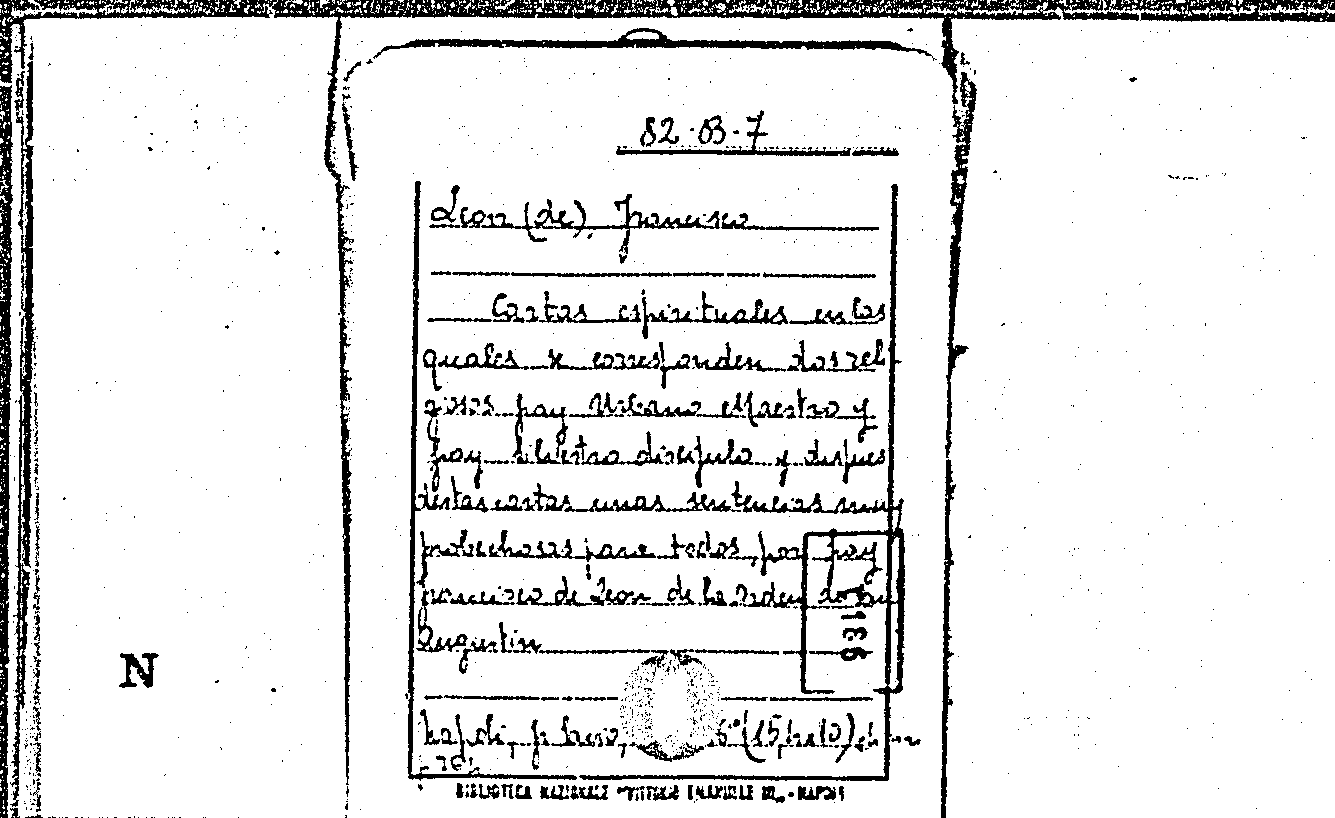 82-B-7
Leon (de), Francisco
Cartas espirituales en las
quales se corresponden dos reli
giosos fray Urbano Maestro y
fray Silbestro discipulo y dispues
destas cartas unas sentencias muy
probechosas para todos, por fray
Francisco de Leon de la orden de Sn
Augustin
N
BIBLIOTECA NAZIONALE "VITTORIO EMANUELE III" - NAPOLI